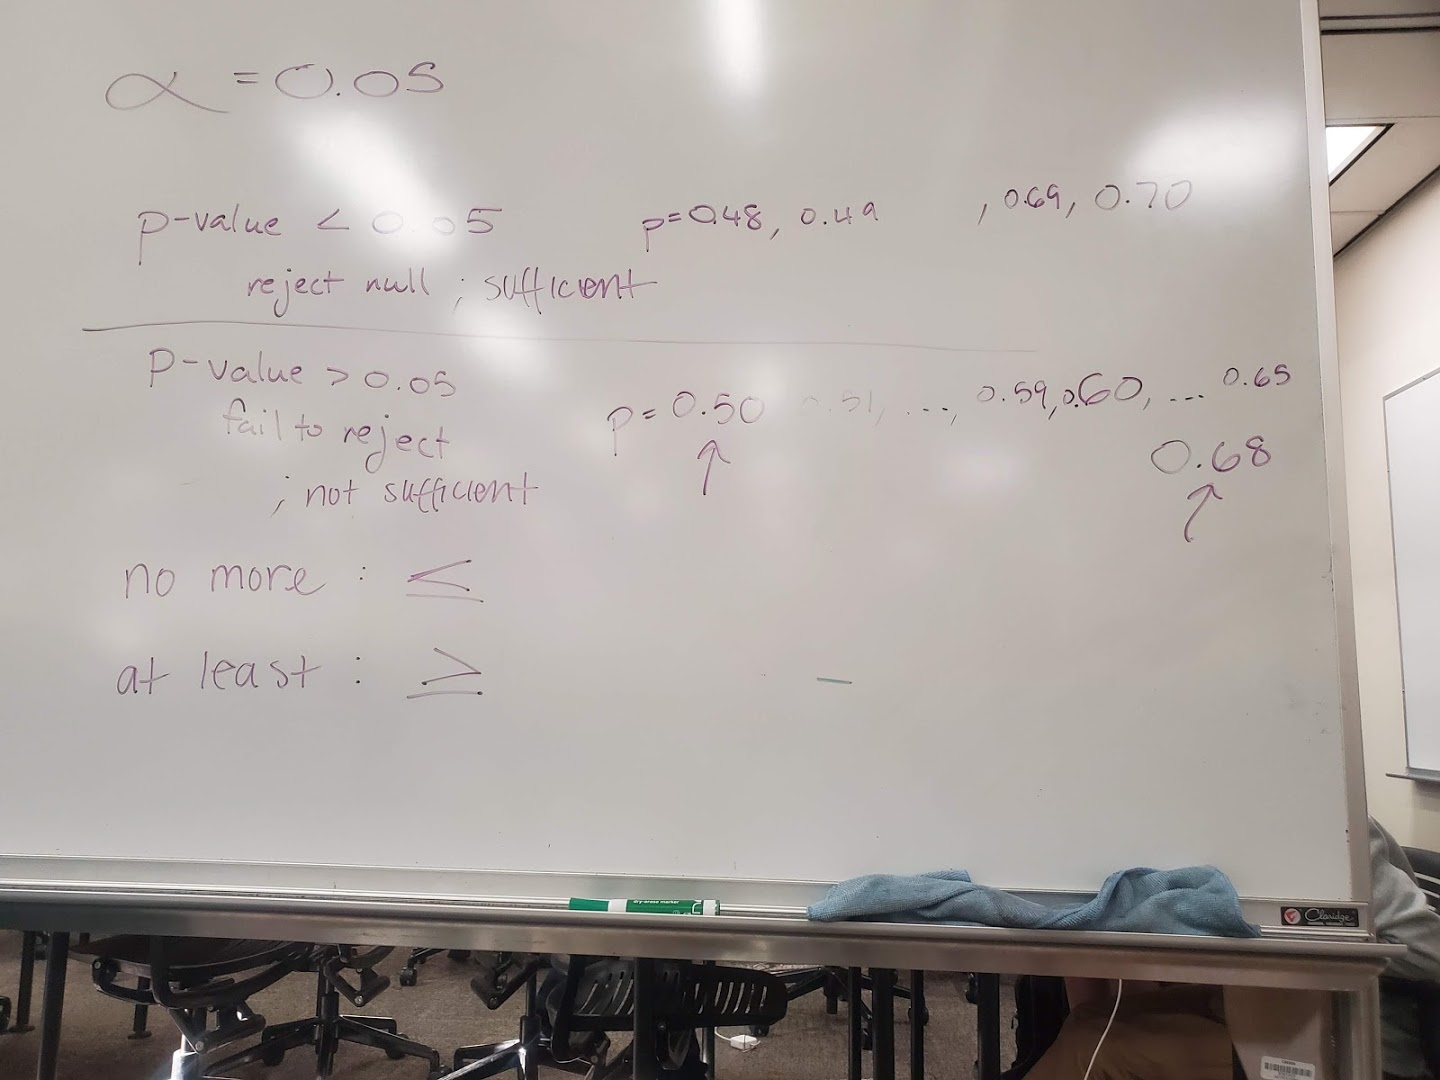 α = 0.05
p-value < 0.05
reject null ; sufficient
p=0.48, 0.49 , 0.69, 0.70
p-value > 0.05
fail to reject
; not sufficient
p = 0.50 0.51, ..., 0.59, 0.60, ... 0.65
0.68
no more : ≤
at least : ≥
dry-erase marker
Claridge